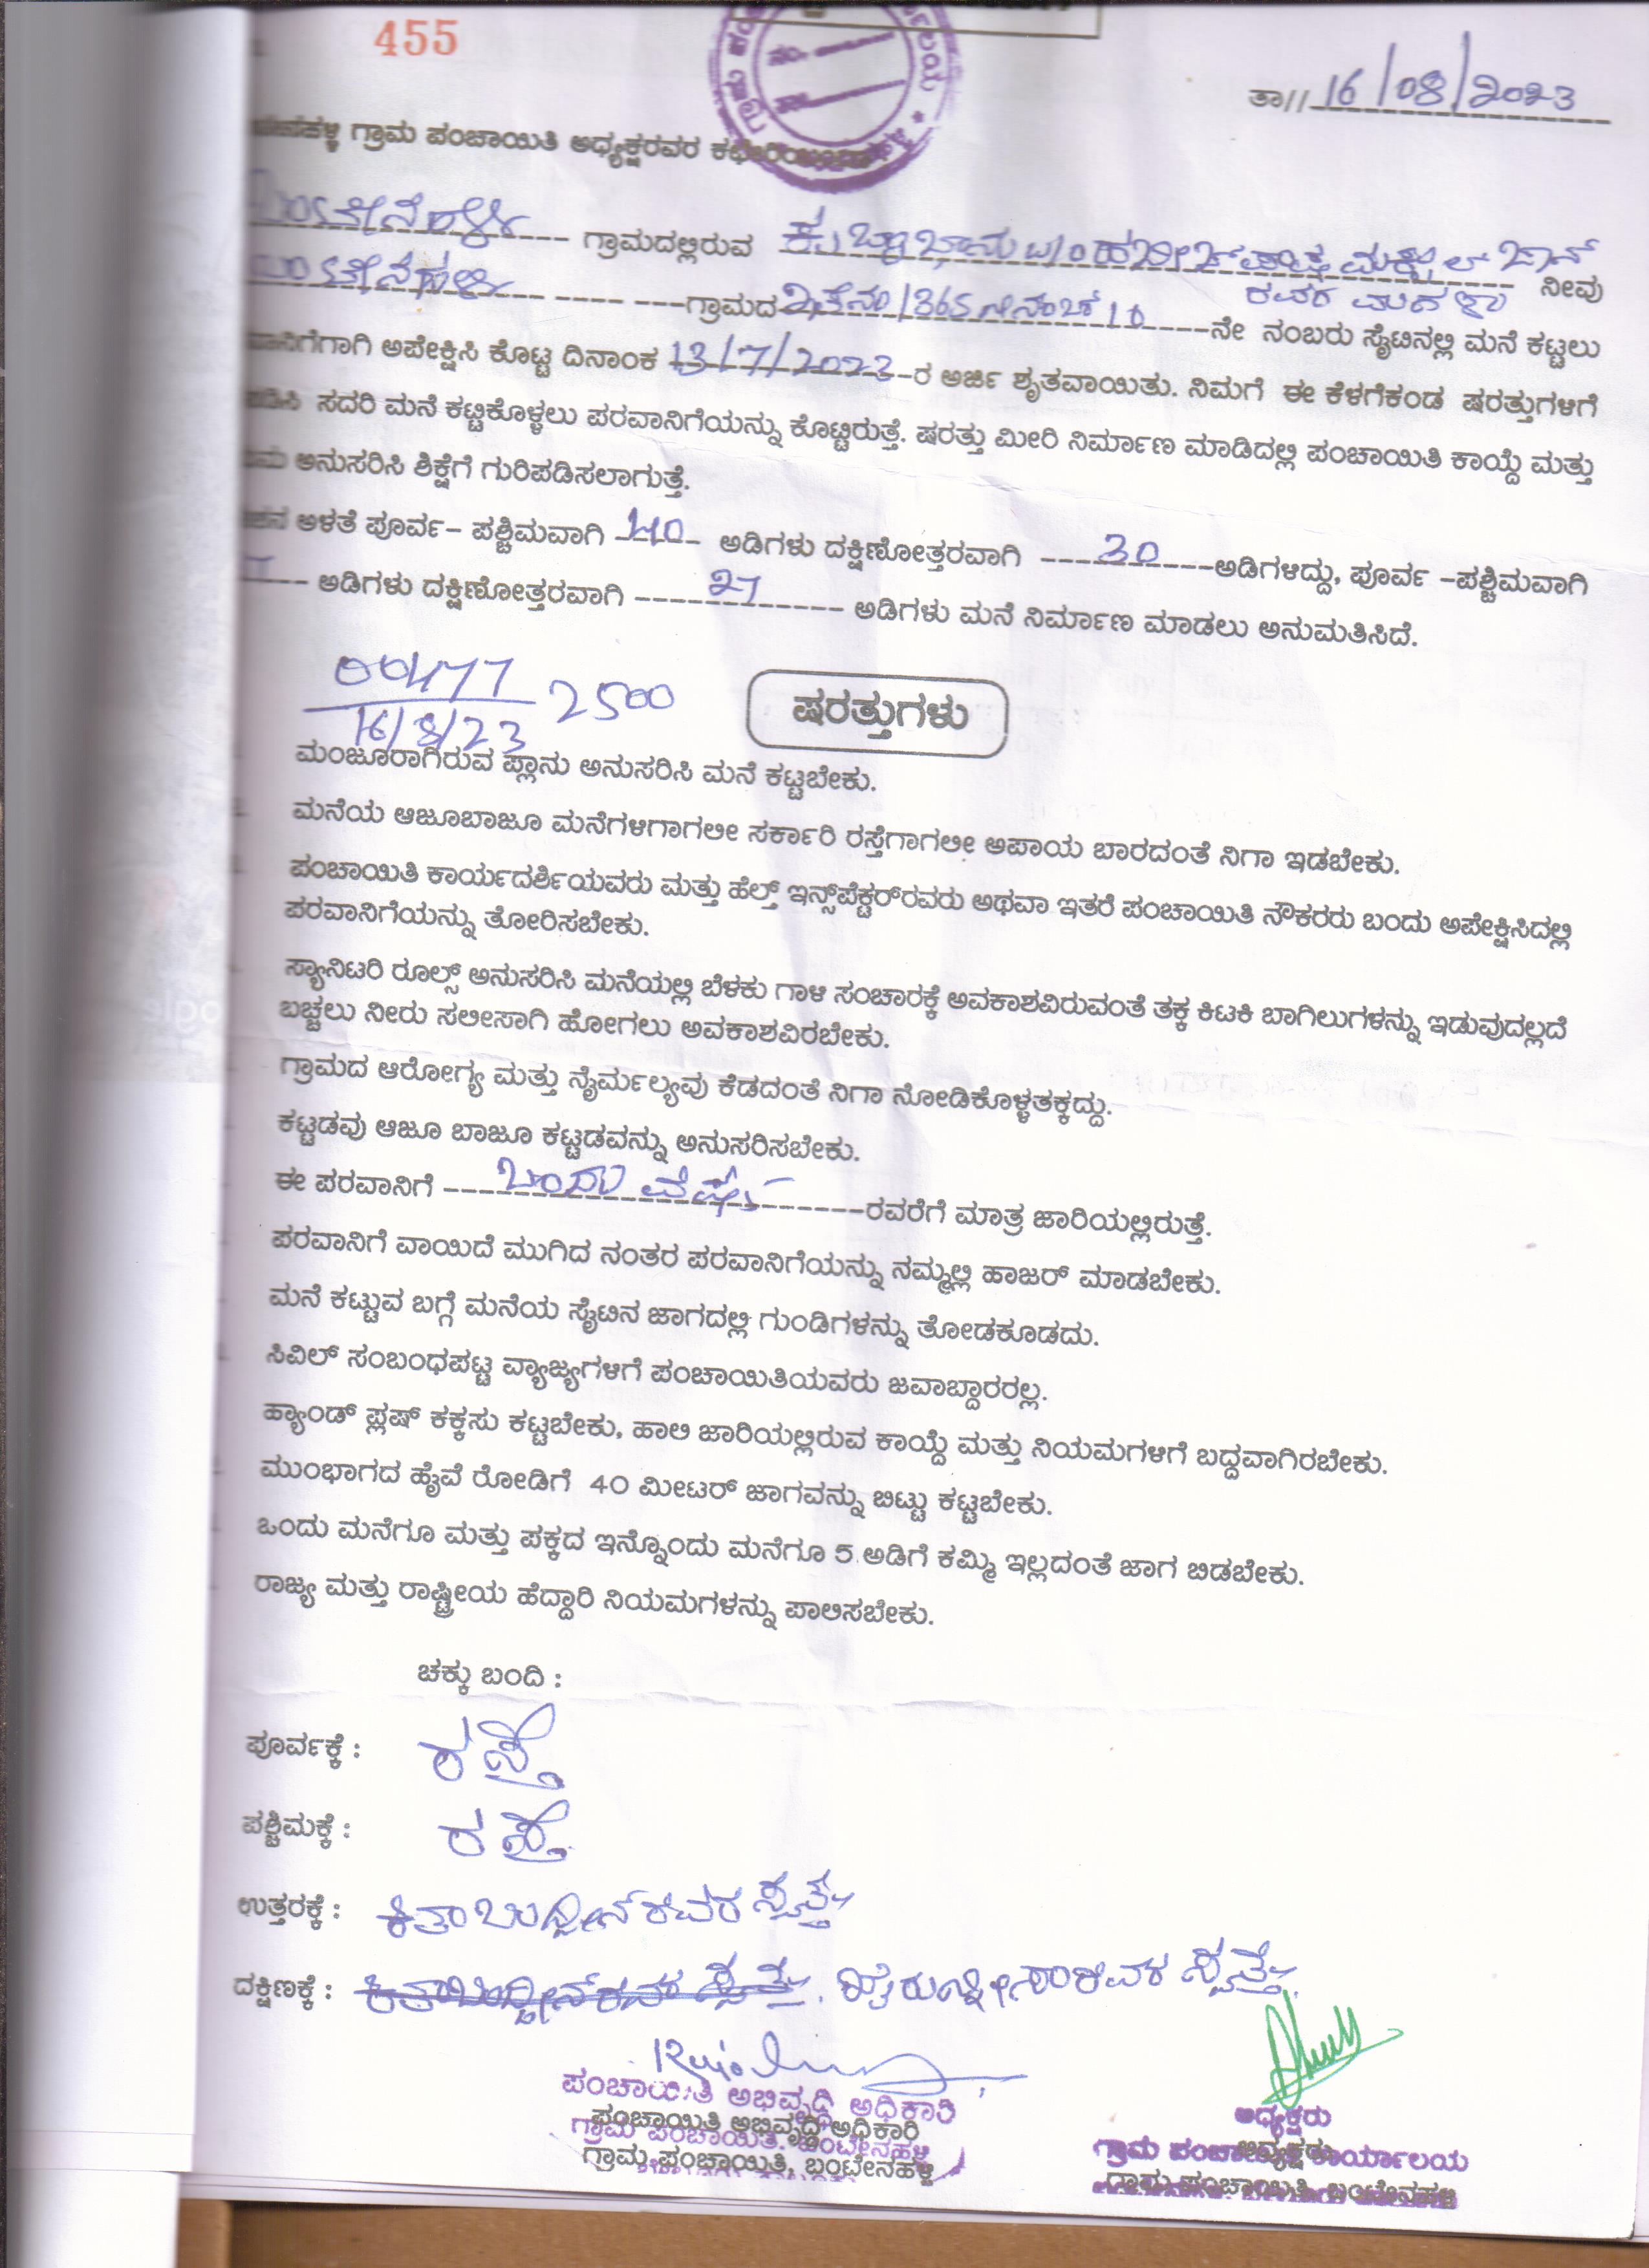 455
ತಾ// 16/08/2023
ಗ್ರಾಮ ಪಂಚಾಯಿತಿ ಅಧ್ಯಕ್ಷರವರ
ಗ್ರಾಮದಲ್ಲಿರುವ
ನೀವು
ಗ್ರಾಮದ 10 ನೇ ನಂಬರು ಸೈಟಿನಲ್ಲಿ ಮನೆ ಕಟ್ಟಲು
ಅಪೇಕ್ಷಿಸಿ ಕೊಟ್ಟ ದಿನಾಂಕ 13/7/2023 ರ ಅರ್ಜಿ ಶೃತವಾಯಿತು. ನಿಮಗೆ ಈ ಕೆಳಗೆಕಂಡ ಷರತ್ತುಗಳಿಗೆ
ಸದರಿ ಮನೆ ಕಟ್ಟಿಕೊಳ್ಳಲು ಪರವಾನಿಗೆಯನ್ನು ಕೊಟ್ಟಿರುತ್ತೆ. ಷರತ್ತು ಮೀರಿ ನಿರ್ಮಾಣ ಮಾಡಿದಲ್ಲಿ ಪಂಚಾಯಿತಿ ಕಾಯ್ದೆ ಮತ್ತು
ಅನುಸರಿಸಿ ಶಿಕ್ಷೆಗೆ ಗುರಿಪಡಿಸಲಾಗುತ್ತೆ.
ಅಳತೆ ಪೂರ್ವ– ಪಶ್ಚಿಮವಾಗಿ 40 ಅಡಿಗಳು ದಕ್ಷಿಣೋತ್ತರವಾಗಿ 30 ಅಡಿಗಳಿದ್ದು, ಪೂರ್ವ –ಪಶ್ಚಿಮವಾಗಿ
ಅಡಿಗಳು ದಕ್ಷಿಣೋತ್ತರವಾಗಿ 27 ಅಡಿಗಳು ಮನೆ ನಿರ್ಮಾಣ ಮಾಡಲು ಅನುಮತಿಸಿದೆ.
00477
16/8/23 2500
ಷರತ್ತುಗಳು
ಮಂಜೂರಾಗಿರುವ ಪ್ಲಾನು ಅನುಸರಿಸಿ ಮನೆ ಕಟ್ಟಬೇಕು.
ಮನೆಯ ಆಜೂಬಾಜೂ ಮನೆಗಳಿಗಾಗಲೀ ಸರ್ಕಾರಿ ರಸ್ತೆಗಾಗಲೀ ಅಪಾಯ ಬಾರದಂತೆ ನಿಗಾ ಇಡಬೇಕು.
ಪಂಚಾಯಿತಿ ಕಾರ್ಯದರ್ಶಿಯವರು ಮತ್ತು ಹೆಲ್ತ್ ಇನ್ಸ್‌ಪೆಕ್ಟರ್‌ರವರು ಅಥವಾ ಇತರೆ ಪಂಚಾಯಿತಿ ನೌಕರರು ಬಂದು ಅಪೇಕ್ಷಿಸಿದಲ್ಲಿ
ಪರವಾನಿಗೆಯನ್ನು ತೋರಿಸಬೇಕು.
ಸ್ಯಾನಿಟರಿ ರೂಲ್ಸ್ ಅನುಸರಿಸಿ ಮನೆಯಲ್ಲಿ ಬೆಳಕು ಗಾಳಿ ಸಂಚಾರಕ್ಕೆ ಅವಕಾಶವಿರುವಂತೆ ತಕ್ಕ ಕಿಟಕಿ ಬಾಗಿಲುಗಳನ್ನು ಇಡುವುದಲ್ಲದೆ
ಬಚ್ಚಲು ನೀರು ಸಲೀಸಾಗಿ ಹೋಗಲು ಅವಕಾಶವಿರಬೇಕು.
ಗ್ರಾಮದ ಆರೋಗ್ಯ ಮತ್ತು ನೈರ್ಮಲ್ಯವು ಕೆಡದಂತೆ ನಿಗಾ ನೋಡಿಕೊಳ್ಳತಕ್ಕದ್ದು.
ಕಟ್ಟಡವು ಆಜೂ ಬಾಜೂ ಕಟ್ಟಡವನ್ನು ಅನುಸರಿಸಬೇಕು.
ಈ ಪರವಾನಿಗೆ ಒಂದು ವರ್ಷ ರವರೆಗೆ ಮಾತ್ರ ಜಾರಿಯಲ್ಲಿರುತ್ತೆ.
ಪರವಾನಿಗೆ ವಾಯಿದೆ ಮುಗಿದ ನಂತರ ಪರವಾನಿಗೆಯನ್ನು ನಮ್ಮಲ್ಲಿ ಹಾಜರ್ ಮಾಡಬೇಕು.
ಮನೆ ಕಟ್ಟುವ ಬಗ್ಗೆ ಮನೆಯ ಸೈಟಿನ ಜಾಗದಲ್ಲಿ ಗುಂಡಿಗಳನ್ನು ತೋಡಕೂಡದು.
ಸಿವಿಲ್ ಸಂಬಂಧಪಟ್ಟ ವ್ಯಾಜ್ಯಗಳಿಗೆ ಪಂಚಾಯಿತಿಯವರು ಜವಾಬ್ದಾರರಲ್ಲ.
ಹ್ಯಾಂಡ್ ಪ್ಲಷ್ ಕಕ್ಕಸು ಕಟ್ಟಬೇಕು, ಹಾಲಿ ಜಾರಿಯಲ್ಲಿರುವ ಕಾಯ್ದೆ ಮತ್ತು ನಿಯಮಗಳಿಗೆ ಬದ್ದವಾಗಿರಬೇಕು.
ಮುಂಭಾಗದ ಹೈವೆ ರೋಡಿಗೆ 40 ಮೀಟರ್ ಜಾಗವನ್ನು ಬಿಟ್ಟು ಕಟ್ಟಬೇಕು.
ಒಂದು ಮನೆಗೂ ಮತ್ತು ಪಕ್ಕದ ಇನ್ನೊಂದು ಮನೆಗೂ 5 ಅಡಿಗೆ ಕಮ್ಮಿ ಇಲ್ಲದಂತೆ ಜಾಗ ಬಿಡಬೇಕು.
ರಾಜ್ಯ ಮತ್ತು ರಾಷ್ಟ್ರೀಯ ಹೆದ್ದಾರಿ ನಿಯಮಗಳನ್ನು ಪಾಲಿಸಬೇಕು.
ಚಕ್ಕು ಬಂದಿ :
ಪೂರ್ವಕ್ಕೆ : ರಸ್ತೆ
ಪಶ್ಚಿಮಕ್ಕೆ : ರಸ್ತೆ
ಉತ್ತರಕ್ಕೆ : ಕಿತಾಬುದ್ದೀನ್ ರವರ ಸ್ವತ್ತು
ದಕ್ಷಿಣಕ್ಕೆ : ಕಿತಾಬುದ್ದೀನ್ ರವರ ಸ್ವತ್ತು. ರವರ ಸ್ವತ್ತು.
ಪಂಚಾಯಿತಿ ಅಭಿವೃದ್ಧಿ ಅಧಿಕಾರಿ
ಪಂಚಾಯಿತಿ ಅಭಿವೃದ್ಧಿ ಅಧಿಕಾರಿ
ಗ್ರಾಮ ಪಂಚಾಯಿತಿ, ಬಂಟೇನಹಳ್ಳಿ
ಗ್ರಾಮ ಪಂಚಾಯಿತಿ, ಬಂಟೇನಹಳ್ಳಿ
ಅಧ್ಯಕ್ಷರು
ಅಧ್ಯಕ್ಷರು
ಗ್ರಾಮ ಪಂಚಾಯಿತಿ ಕಾರ್ಯಾಲಯ
ಗ್ರಾಮ ಪಂಚಾಯಿತಿ, ಬಂಟೇನಹಳ್ಳಿ